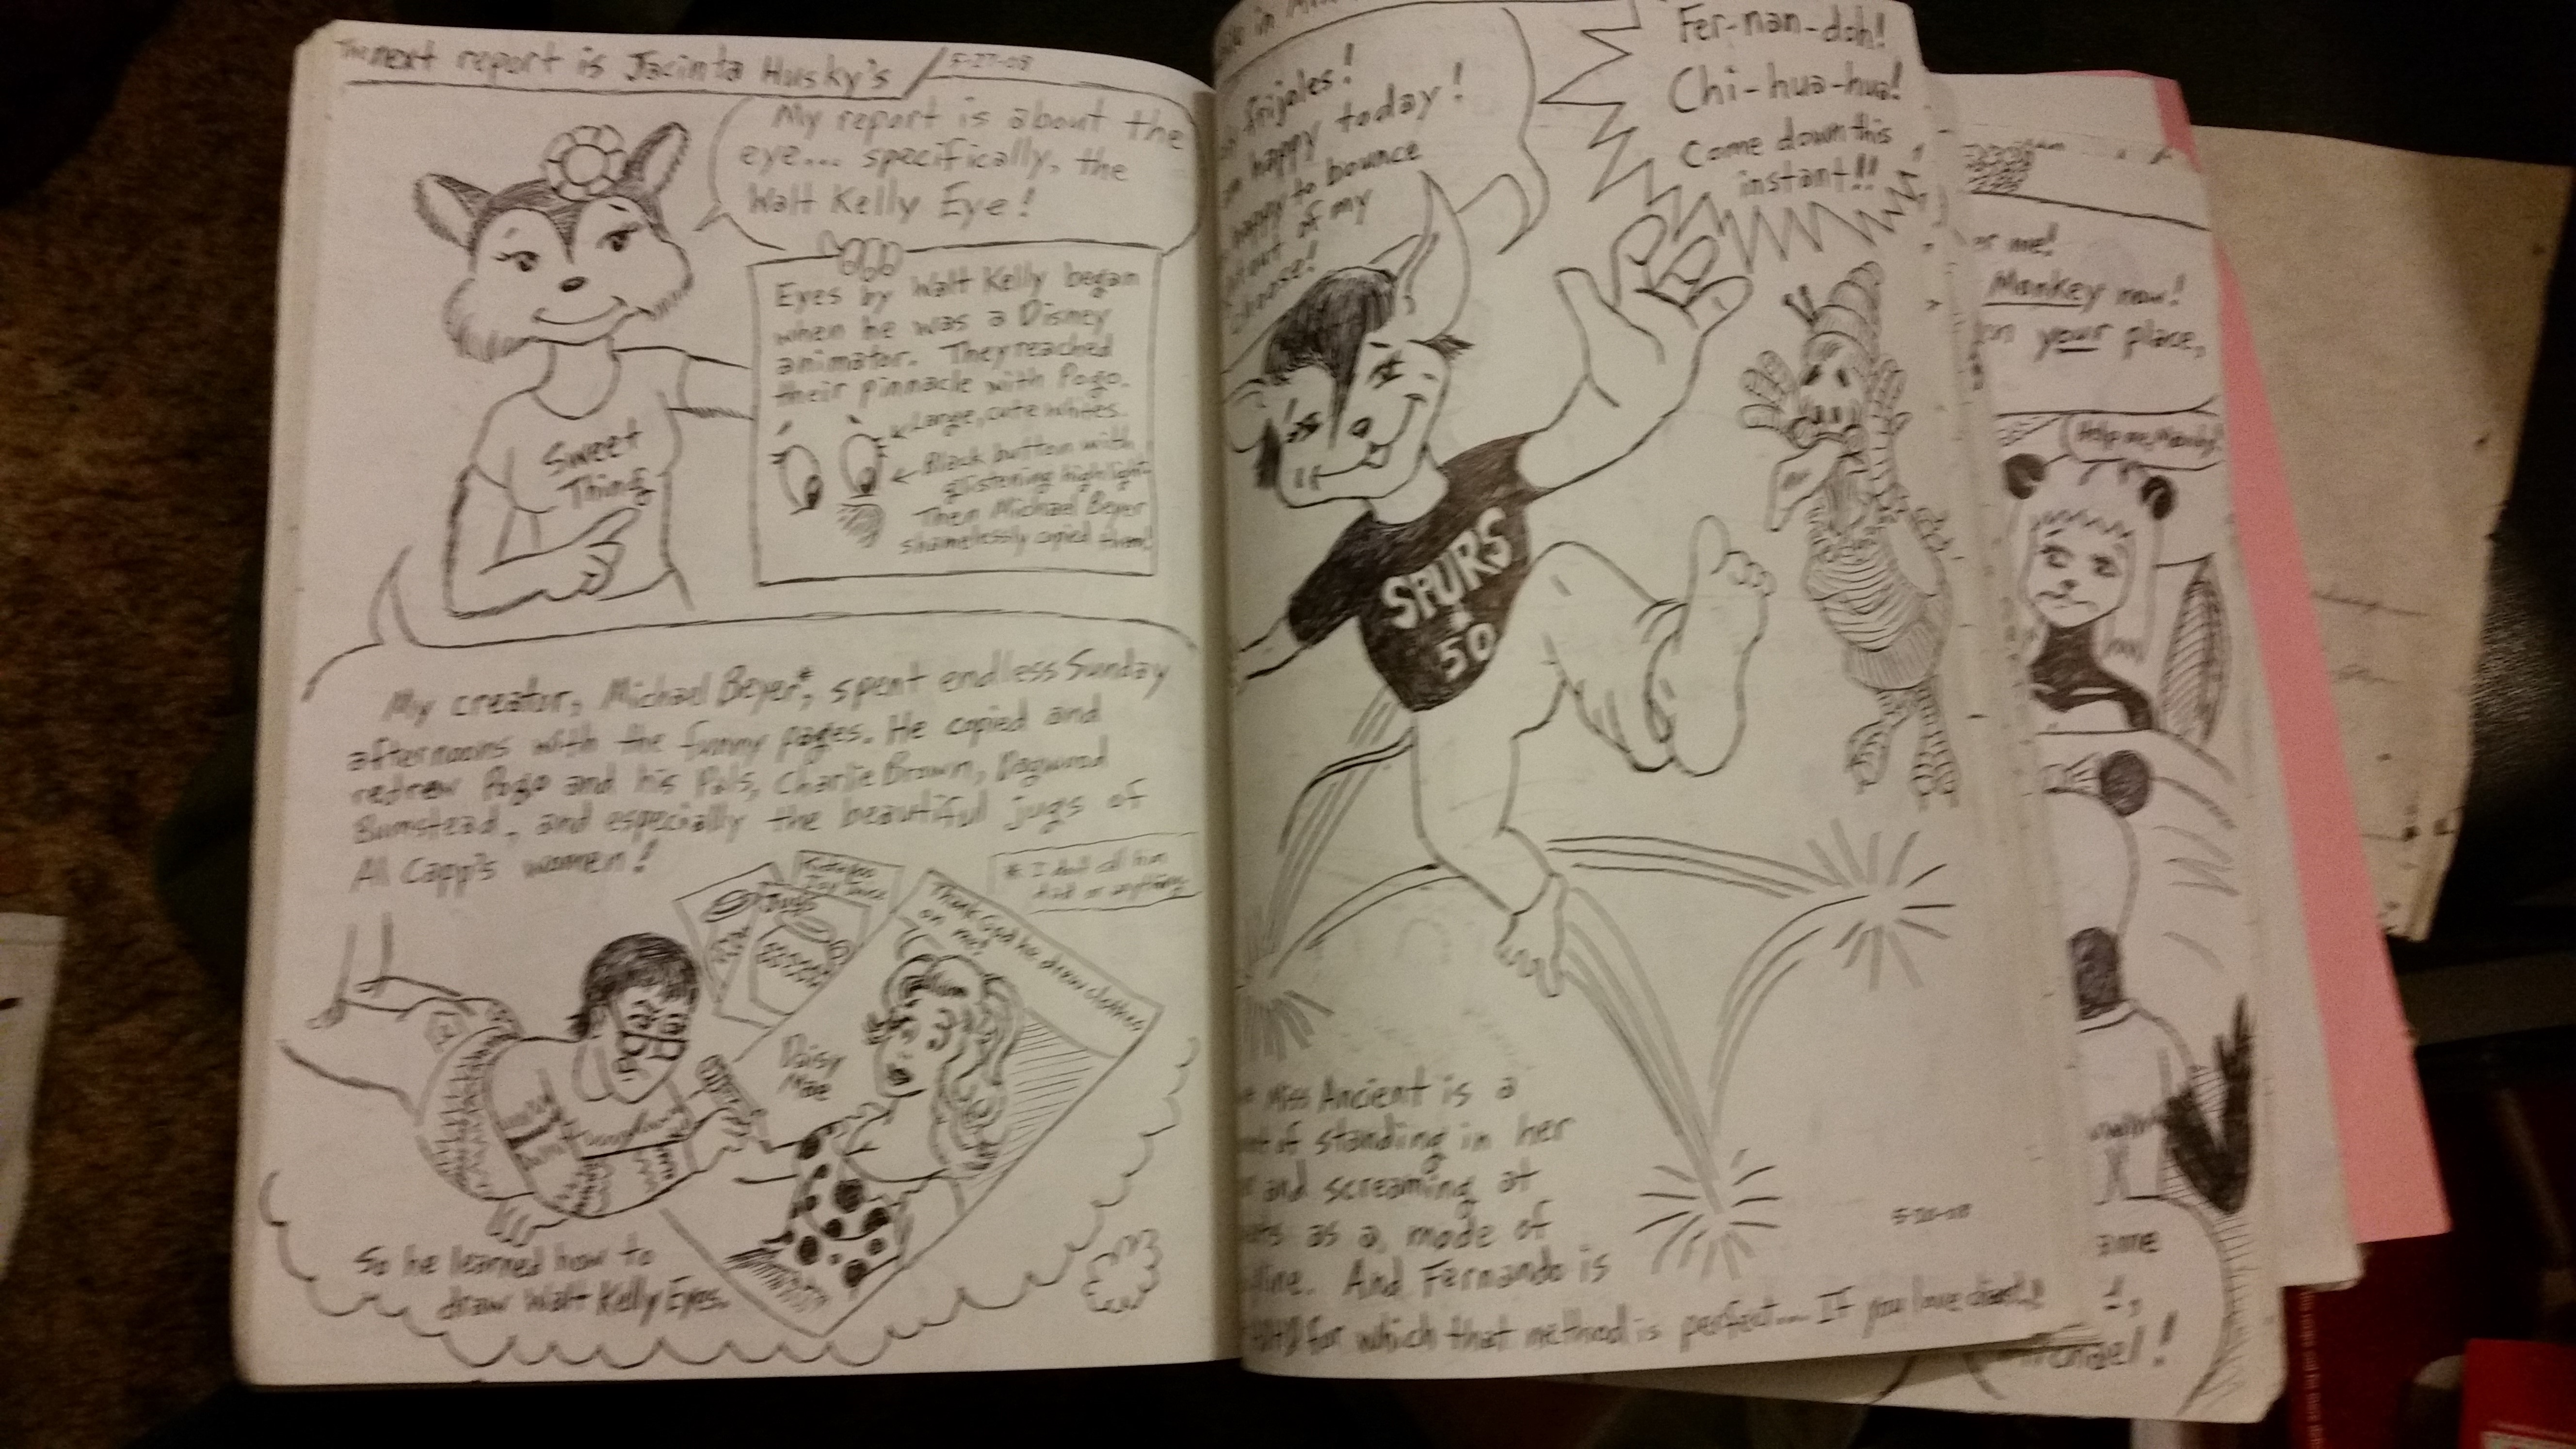 The next report is Jacinta Husky's
5-27-08
My report is about the
eye... specifically, the
Walt Kelly Eye!
Sweet
Thing
Eyes by Walt Kelly began
when he was a Disney
animator. They reached
their pinnacle with Pogo.
Large, cute whites.
Black button with
glistening highlight.
Then Michael Beyer
shamelessly copied them!
My creator, Michael Beyer*, spent endless Sunday
afternoons with the funny pages. He copied and
redrew Pogo and his Pals, Charlie Brown, Dagwood
Bumstead, and especially the beautiful jugs of
Al Capp's women!
* I don't call him
dad or anything
Jugs
Thank God he drew clothes
on me!
Daisy
Mae
So he learned how to
draw Walt Kelly Eyes.
in
frijoles!
happy today!
happy to bounce
out of my
Fer-nan-doh!
Chi-hua-hua!
Come down this
instant!!
SPURS
50
Miss Ancient is a
of standing in her
and screaming at
as a mode of
And Fernando is
for which that method is perfect... If you love
5-20-08
me!
Monkey now!
your place,
Help me,
ame